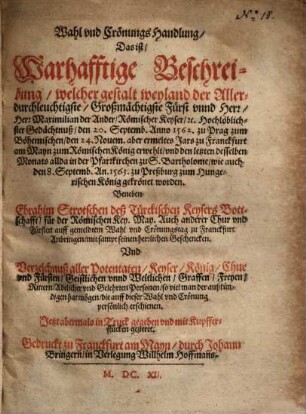 N.º 18.
Wahl vnd Crönungs Handlung/
Das ist/
Warhafftige Beschrei-
bung / welcher gestalt weyland der Aller-
durchleuchtigste / Großmächtigste Fürst vnnd Herr/
Herr Maximilian der Ander/ Römischer Keyser/ ꝛc. Hochlöblich-
ster Gedächtnuß/ den 20. Septemb. Anno 1562. zu Prag zum
Böhemischen/ den 24. Nouem. aber ermeltes Jars zu Franckfurt
am Mayn zum Römischen König erwehlt/ vnd den letzten desselben
Monats allda in der Pfarrkirchen zu S. Bartholome/ wie auch
den 8. Septemb. An. 1563. zu Preßburg zum Hunge-
rischen König gekrönet worden.
Beneben
Ebrahim Strotschen deß Türckischen Keysers Bott-
schafft/ für der Römischen Key. May. Auch anderer Chur vnd
Fürsten auff gemeldtem Wahl vnd Crönungstag zu Franckfurt
Anbringen/ mit sampt seinen herrlichen Geschencken.
Vnd
Verzeichnuß aller Potentaten / Keyser/ König / Chur
vnd Fürsten/ Geistlichen vnnd Weltlichen / Graffen / Freyen/
Rittern/ Adelichs vnd Gelehrten Personen/ so viel man der außkün-
digen hat mögen/ die auff dieser Wahl vnd Crönung
persönlich erschienen.
Jetzt abermals in Truck gegeben vnd mit Kupffer-
stücken gezieret.
Gedruckt zu Franckfurt am Mayn / durch Johann
Bringern/ in Verlegung Willhelm Hoffmans.
M. DC. XII.